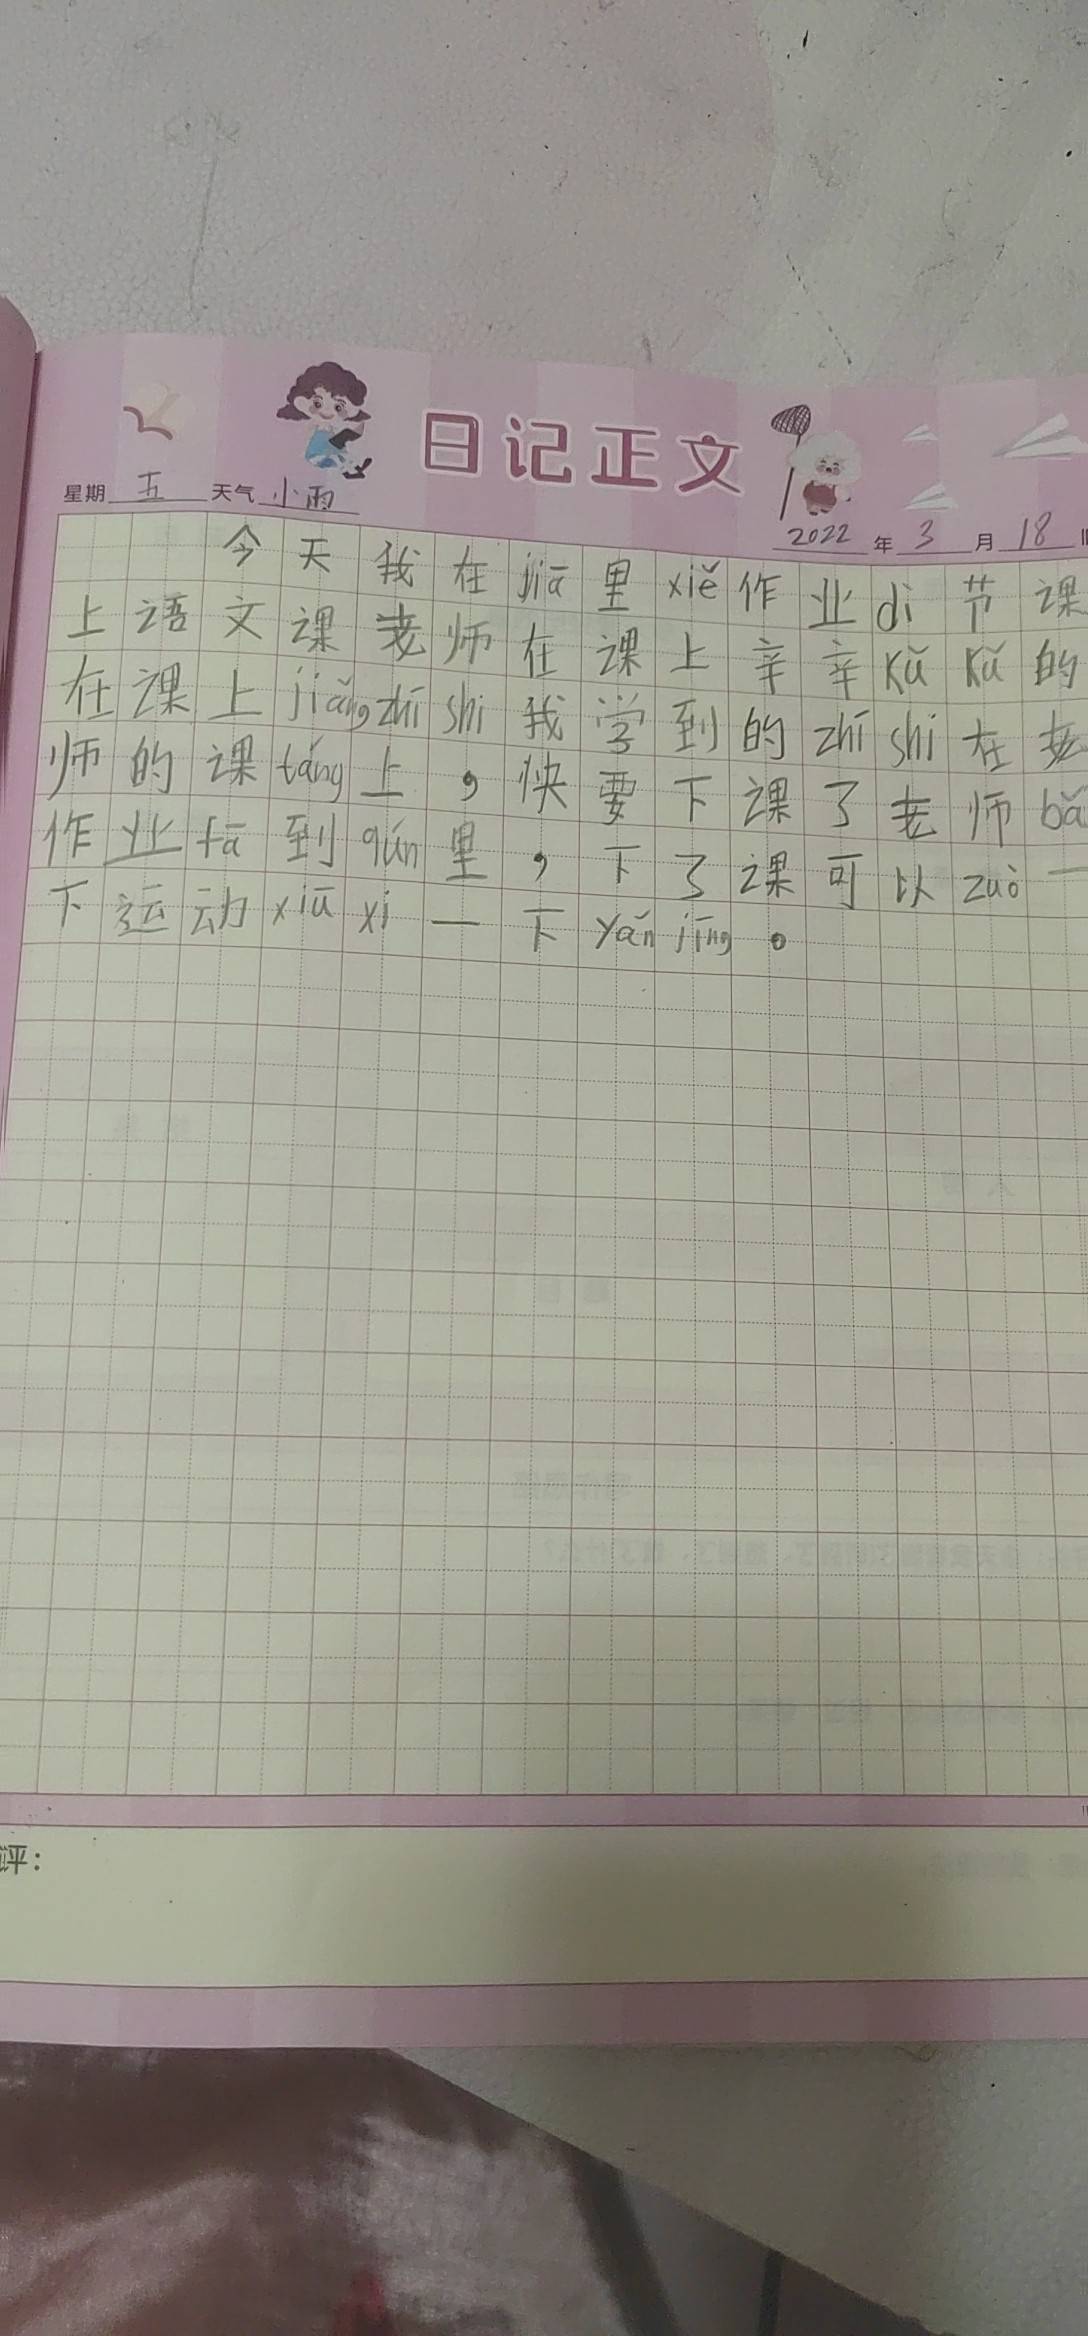 日记正文
星期 五 天气 小雨
2022 年 3 月 18
今天我在jiā里xiě作业dì节课
上语文课老师在课上辛辛kǔkǔ的
在课上jiǎngzhīshi我学到的zhīshi在老
师的课táng上，快要下课了老师bǎ
作业fā到qún里，下了课可以zuò一
下运动xiūxi一下yǎnjīng。
评：